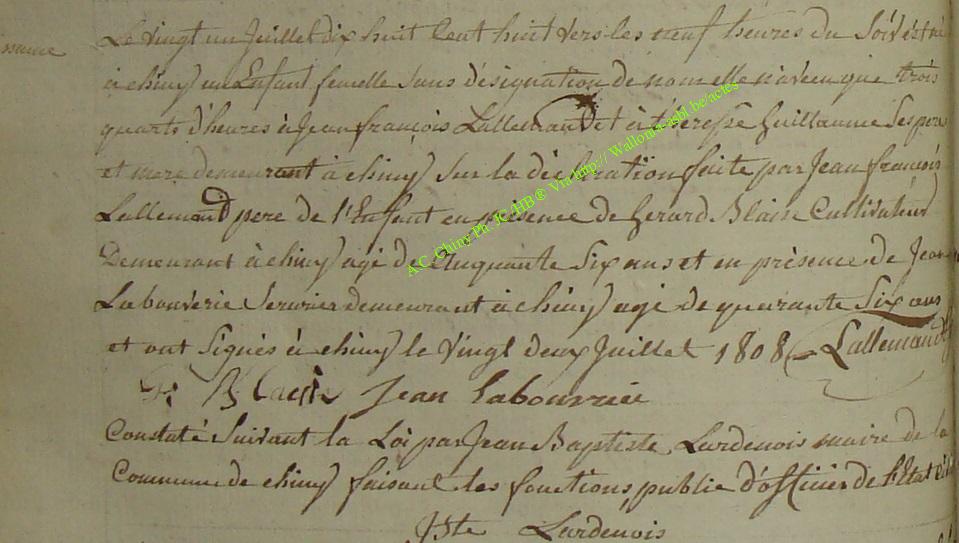 Le vingt un Juillet dix huit Cent huit vers les neuf heures du Soir est né
à chiny un Enfant femelle Sans désignation de nom elle n'a vécu que trois
quarts d'heures à Jean françois Lallemand et à théresse Guillaume Ses pere
et mere demeurant à chiny Sur la déclaration faite par Jean françois
Lallemand pere de l'Enfant en présence de Gerard Blain Cultivateur
Demeurant à chiny agé de Cinquante Six ans et en présence de Jean
Labouverie Serurier demeurant à chiny agé de quarante Six ans
et ont Signés à chiny le Vingt deux Juillet 1808 Lallemand
G: Jean labouverie
Constaté Suivant la Loi par Jean Baptiste Lardenois maire de la
Commune de chiny faisant les fonctions public d'officier de l'Etat Civil
JBte Lardenois
A.C. Chiny Ph. JC.HB® Via http:// Wallonia-asbl.be/actes